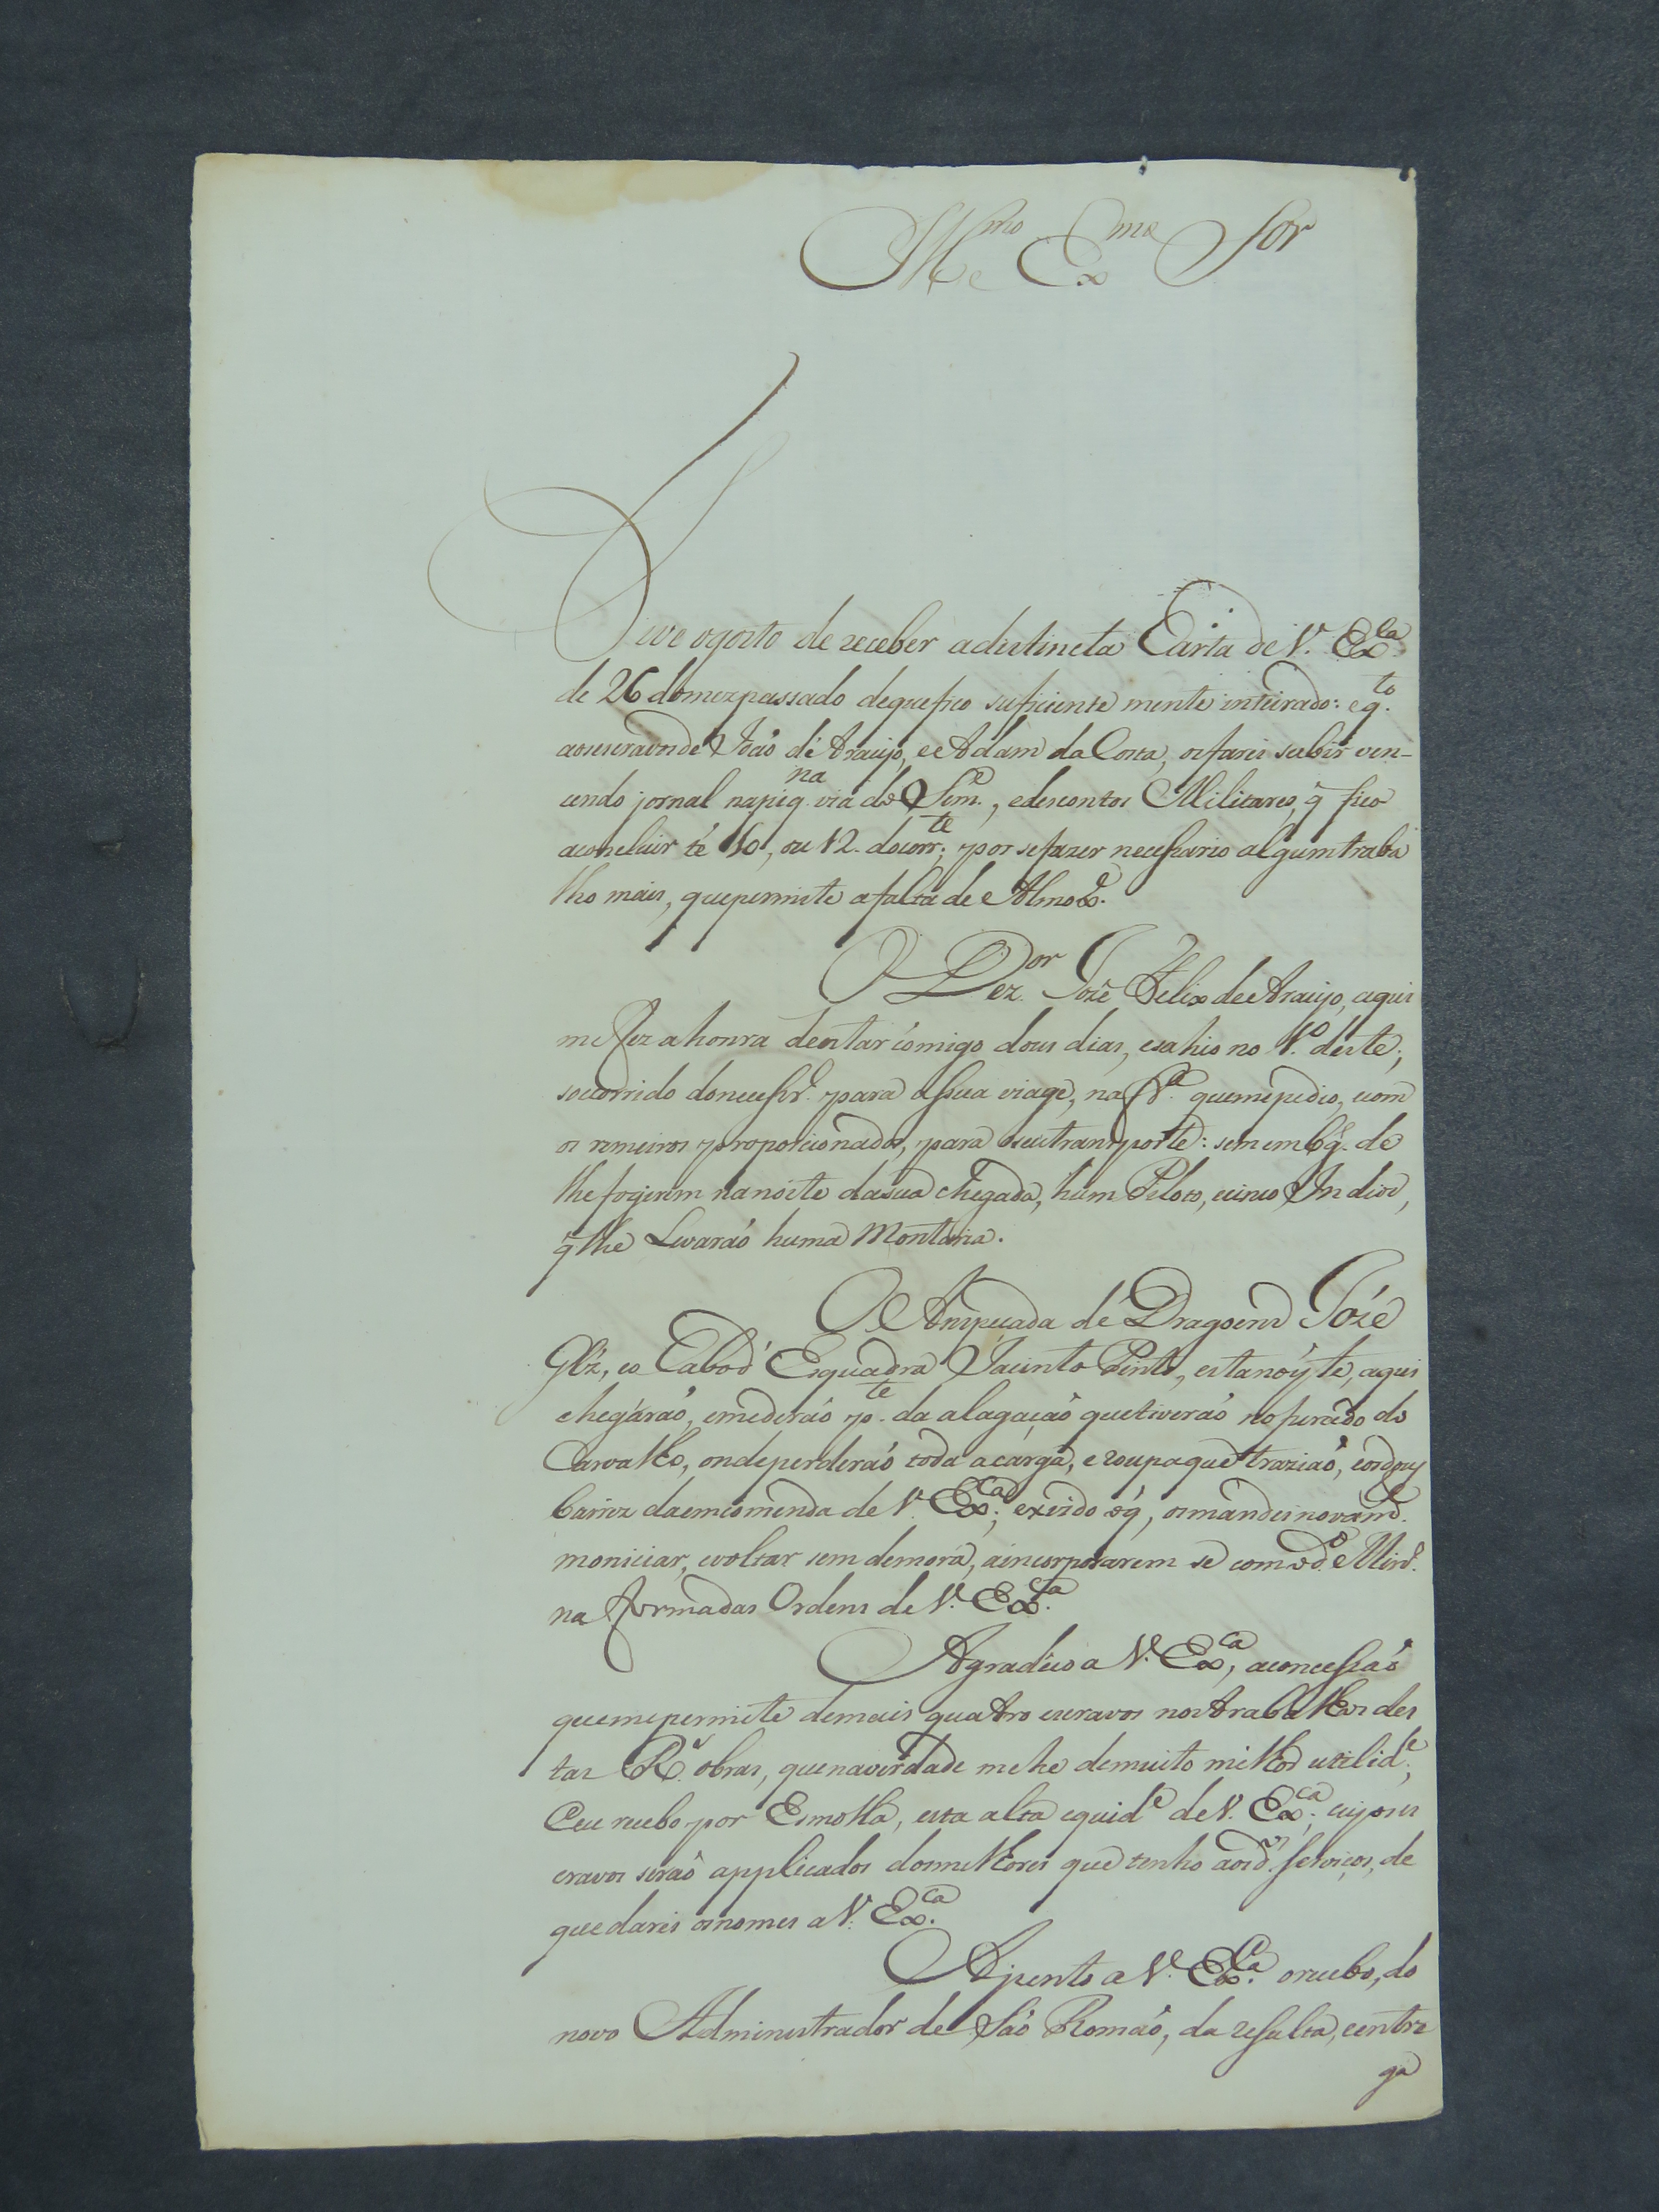 Illmo e Exmo Sor
Tive ogosto de receber adistincta Carta de V. Exca
de 26 domezpassado dequefico suficiente mente inteirado: eq.to
aosescravos de Joaõ de Araujo, e Adam da Costa, osfarei subir ven-
cendo jornal napiq.na via do Sim.e, edescontos Militares, q̃ fico
aconcluir té 10, ou 12. docorr.te; por sefazer necessario algumtraba
lho mais, quepermite afalta de Almox.e
O Dez.or Jozé Felix de Araujo, aqui
mefez ahonra deestar comigo dous dias, esahio no 1.o deste;
socorrido donecessr.o para asua viage, na quemepedio, com
os remeiros proporcionados, para oseutransporte: sem embg.o de
lhe fogirem nanoite dasua chegada, hum Piloto, ecinco Indios,
q̃ lhe Levaraõ huma Montaria.
O Anspeçada de Dragoens Jozé
Glz, eo Cabo d' Esquadra Jacinto Pinto, estanoyte, aqui
chegáraõ, emederaõ p.te da alagaçaõ quetiveraõ nofurado do
Carvalho, ondeperderaõ toda acarga, e roupaque traziaõ,
barriz daemcomenda de V. Exca; osmandeinovam.e
moniciar, evoltar sem demora, aincorporarem se como d.o Min.o
na forma das Ordens de V. Exca.
Agradeco a V. Exca, aconcessaõ
quemepermite demais quatro escravos nostrabalhos des
tas R.s obras, quenaverdade mehe demuito milhor utilid.e;
Eeu recebo por Esmolla, esta alta equid.e de V. Exca; cujoses
cravos seraõ applicados dosmilhores que tenho aosd.os serviços, de
quedarei osnomes a V. Exca.
Ajunto a V. Exca. orecibo, do
novo Administrador de Saõ Romaõ, da resulta, eentre
ga